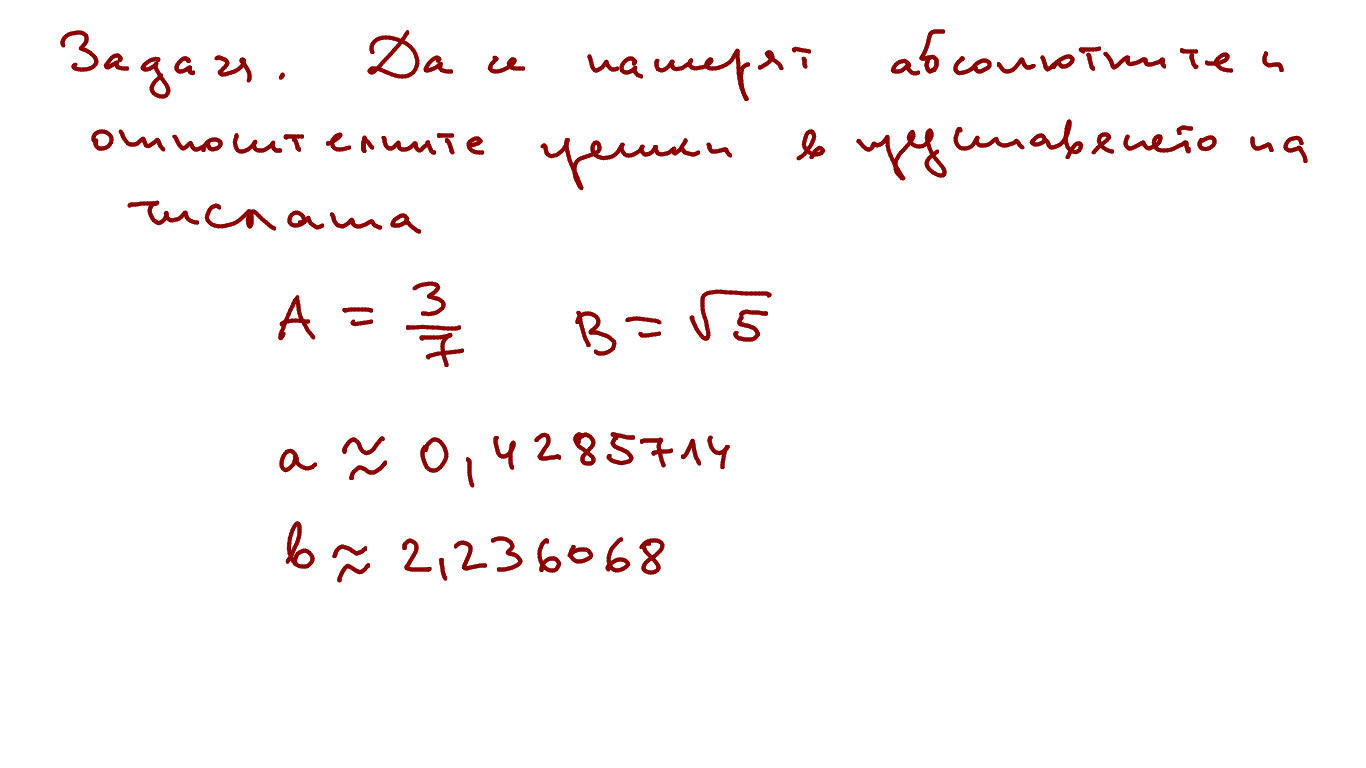 Задача. Да се намерят абсолютните и
относителните грешки в представянето на
числата
A = 3/7 B = √5
a ≈ 0,4285714
b ≈ 2,236068